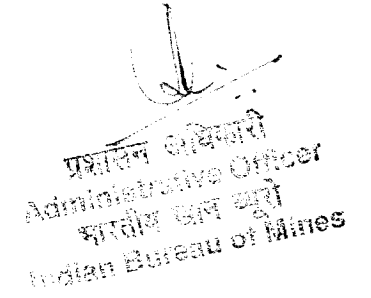 प्रशासन अधिकारी
Administrative Officer
भारतीय खान ब्यूरो
Indian Bureau of Mines